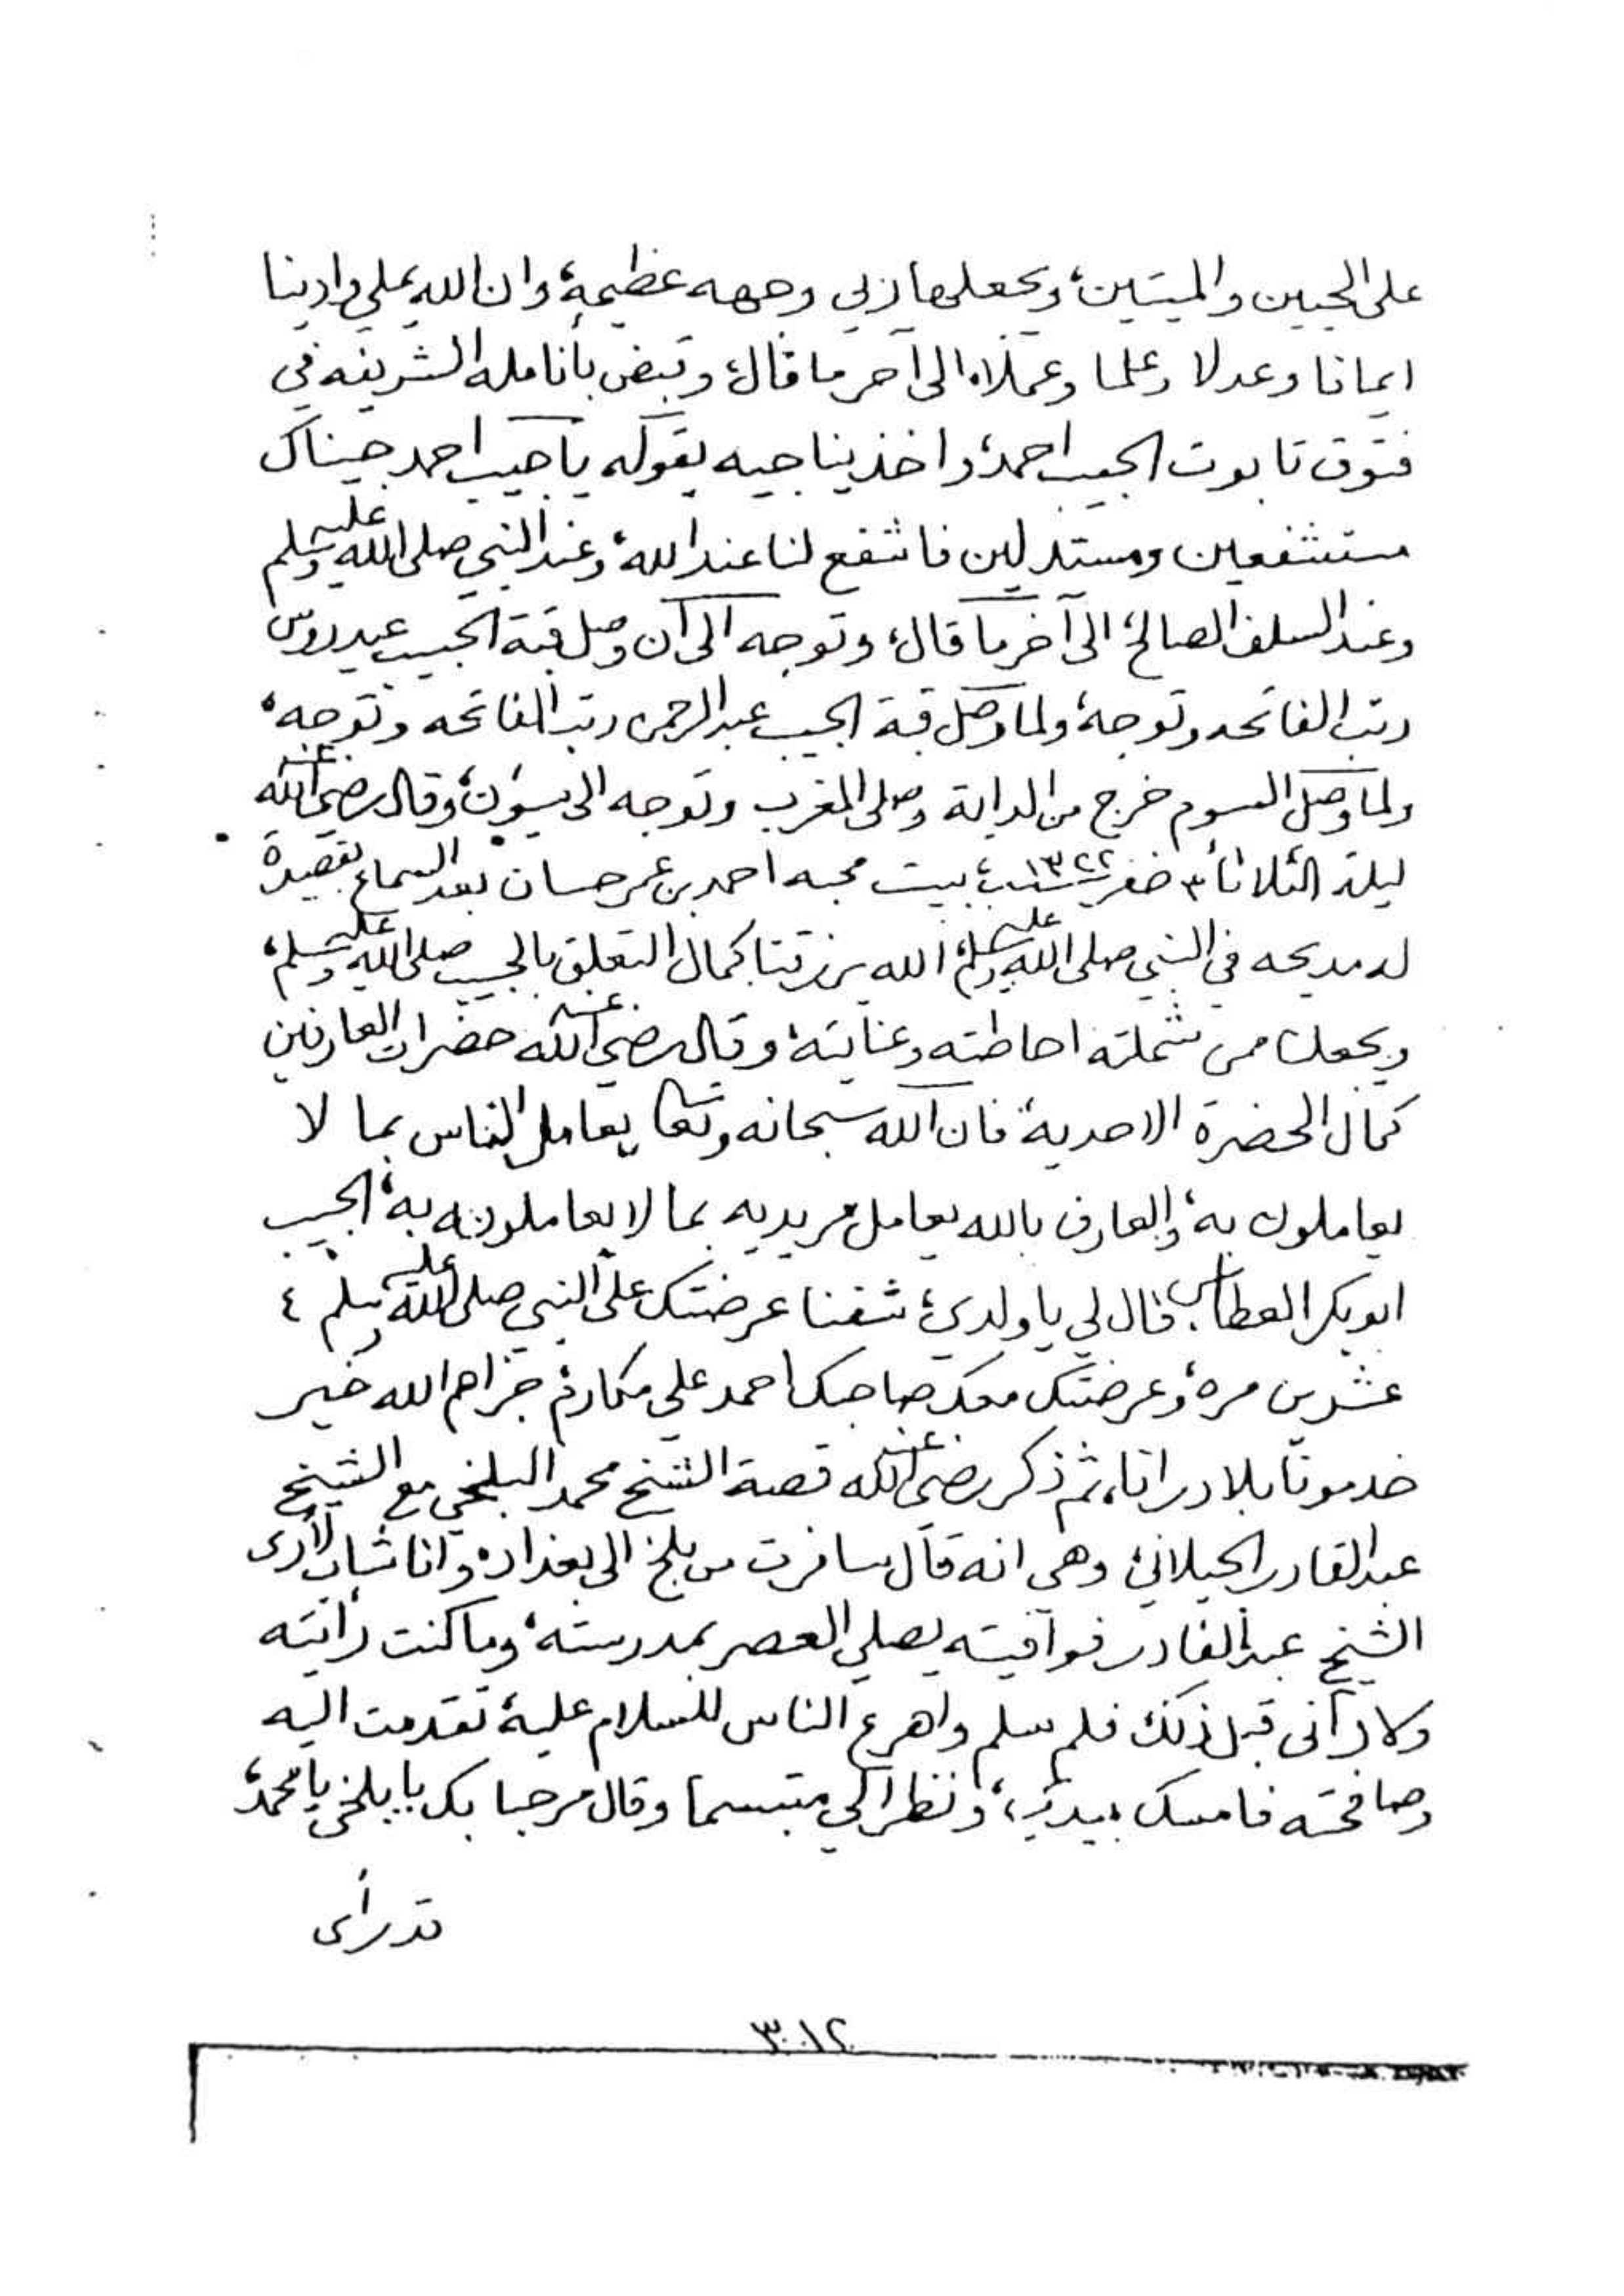 على الحيين والميتين، ويجعلها زبي وجهه عظيمة، وان الله يملي وادينا
ايمانا وعدلا وعلما وعملا، الى آخر ما قال، وقبض بأنامله الشريفه في
فتوق تابوت الحبيب احمد، واخذ يناجيه بقوله يا حبيب احمد جيناك
مستشفعين ومستدلين فاشفع لنا عند الله، وعند النبي صلى الله عليه وسلم
وعند السلف الصالح، الى آخر ما قال، وتوجه الى أن وصل قبة الحبيب عيدروس
رتب الفاتحه وتوجه، ولما وصل قبة الحبيب عبدالرحمن رتب الفاتحه وتوجه،
ولما وصل السوم خرج من الدابة وصلى المغرب وتوجه الى سيؤن، وقال رضي الله عنه
ليلة الثلاثا ٣ صفر سنة ١٣٢٢ بيت محبه احمد بن عمر حسان بعد السماع بقصيدة
له مديحه في النبي صلى الله عليه وسلم، الله يرزقنا كمال التعلق بالحبيب صلى الله عليه وسلم،
ويجعلنا ممن شملته احاطته وعنايته، وقال رضي الله عنه حضرات العارفين
كمال الحضرة الاحدية، فان الله سبحانه وتعالى يعامل الناس بما لا
يعاملون به، والعارف بالله يعامل مريديه بما لا يعاملونه به، الحبيب
ابوبكر العطاس قال لي يا ولدي، شفنا عرضتك على النبي صلى الله عليه وسلم ٤
عشرين مره، وعرضتك معك صاحبك احمد علي مكارم، جزاهم الله خير
خدمونا بلا درانا، ثم ذكر رضي الله عنه قصة الشيخ محمد البلخي مع الشيخ
عبدالقادر الجيلاني، وهي انه قال سافرت من بلخ الى بغداد، وانا شاب لأرى
الشيخ عبدالقادر فوافيته يصلي العصر بمدرسته، وما كنت رأيته
ولا رآنى قبل ذلك، فلم سلم واهرع الناس للسلام عليه، تقدمت اليه
وصافحته فامسك بيدي، ونظر الي مبتسما وقال مرحبا بك يا بلخي يا محمد،
قد رأى
٣٠١٢